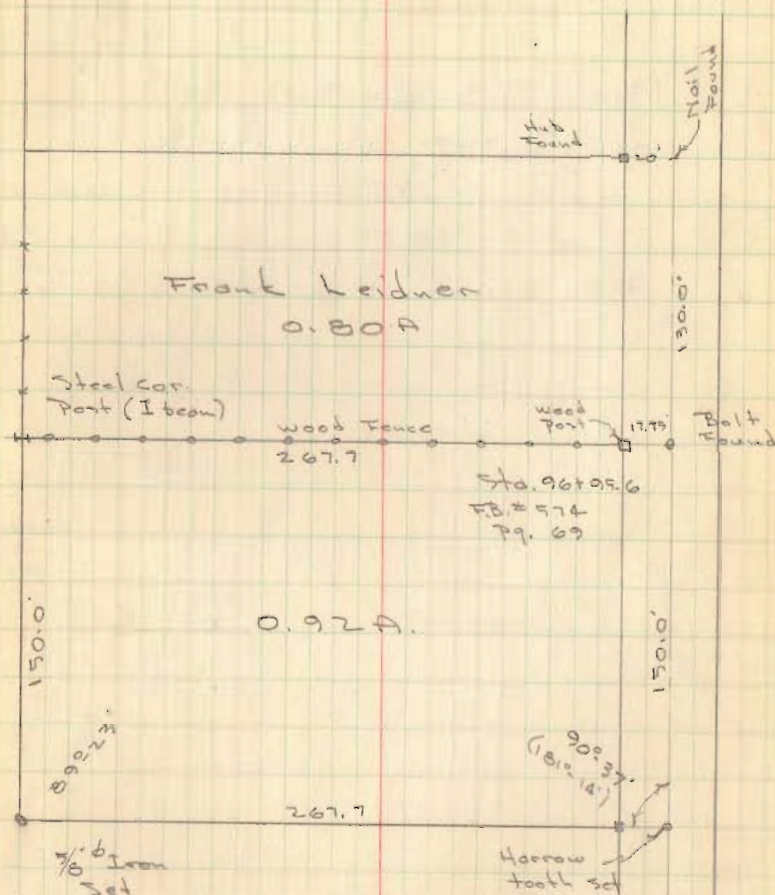 Nail
Found
Hub
Found
20'
Frank Leidner
0.80 A
130.0'
Steel Cor.
Post (I beam)
wood Fence
wood
Post
17.75'
Bolt
Found
267.7
Sta. 96+95.6
F.B. # 574
Pg. 69
0.92 A.
150.0'
150.0'
89°-23'
90°-37'
(181°-14')
267.7
5/8" φ Iron
Set
Harrow
tooth set